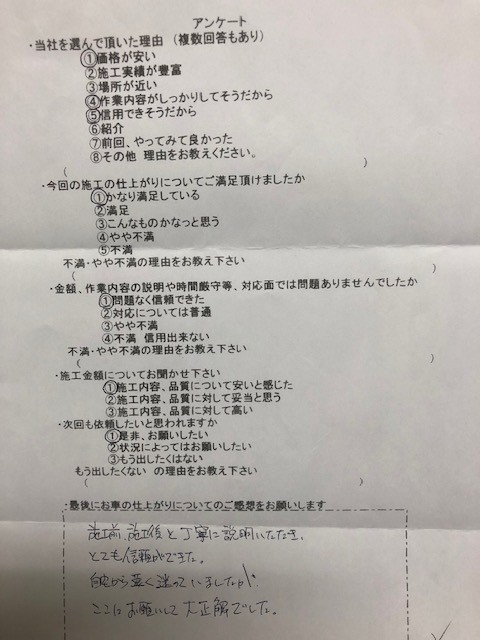 アンケート
・当社を選んで頂いた理由　（複数回答もあり）
①価格が安い
②施工実績が豊富
③場所が近い
④作業内容がしっかりしてそうだから
⑤信用できそうだから
⑥紹介
⑦前回、やってみて良かった
⑧その他　理由をお教えください。
(　　　)
・今回の施工の仕上がりについてご満足頂けましたか
①かなり満足している
②満足
③こんなものかなっと思う
④やや不満
⑤不満
不満・やや不満の理由をお教え下さい
(　　　)
・金額、作業内容の説明や時間厳守等、対応面では問題ありませんでしたか
①問題なく信頼できた
②対応については普通
③やや不満
④不満　信用出来ない
不満・やや不満の理由をお教え下さい
(　　　)
・施工金額についてお聞かせ下さい
①施工内容、品質について安いと感じた
②施工内容、品質に対して妥当と思う
③施工内容、品質に対して高い
・次回も依頼したいと思われますか
①是非、お願いしたい
②状況によってはお願いしたい
③もう出したくはない
もう出したくない　の理由をお教え下さい
(　　　)
・最後にお車の仕上がりについてのご感想をお願いします
施工前、施工後と丁寧に説明いただき、
とても信頼ができた。
自宅から遠く迷っていましたが、
ここにお願いして大正解でした。